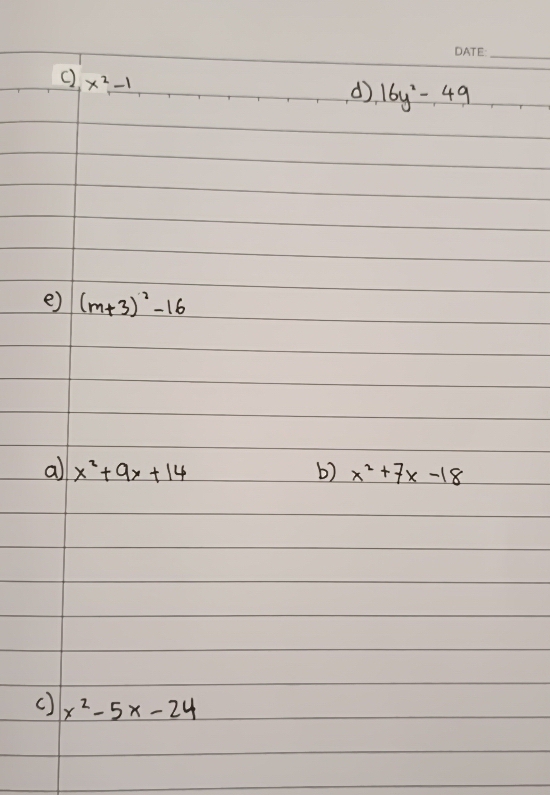 DATE:
c) x² - 1 d) 16y² - 49
e) (m+3)² - 16
a) x² + 9x + 14 b) x² + 7x - 18
c) x² - 5x - 24